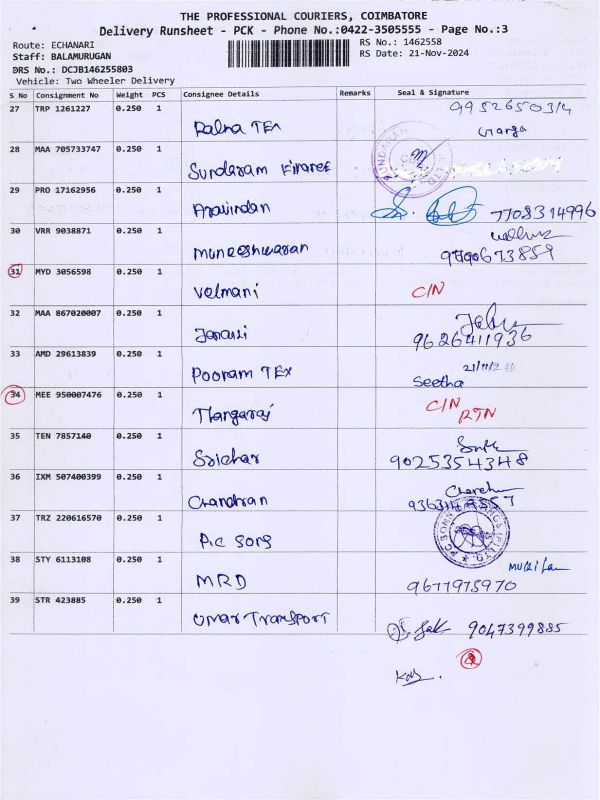 THE PROFESSIONAL COURIERS, COIMBATORE
Delivery Runsheet - PCK - Phone No.:0422-3505555 - Page No.:3
Route: ECHANARI
RS No.: 1462558
Staff: BALAMURUGAN
RS Date: 21-Nov-2024
DRS No.: DCJB146255803
Vehicle: Two Wheeler Delivery
S No Consignment No Weight PCS Consignee Details Remarks Seal & Signature
27 TRP 1261227 0.250 1 9952650314
Ralna TEx
28 MAA 705733747 0.250 1
Sundaram Finance
29 PRO 17162956 0.250 1
Aravindan 7708314996
30 VRR 9038871 0.250 1
Muneeshwaran
31 MYD 3056598 0.250 1
Velmani C/N
32 MAA 867020007 0.250 1
9626411936
33 AMD 29613839 0.250 1
Pooram TEx
Seetha
34 MEE 950007476 0.250 1
Thangaraj C/N
RTN
35 TEN 7857140 0.250 1
Sridhar 9025354348
36 IXM 507400399 0.250 1
Chandran
37 TRZ 220616570 0.250 1
P.C SONS
38 STY 6113108 0.250 1
MRD 9677975970
39 STR 423885 0.250 1
Umar Transport 9047399885